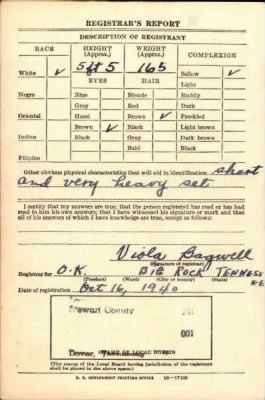 REGISTRAR'S REPORT
DESCRIPTION OF REGISTRANT
RACE HEIGHT (Approx.) WEIGHT (Approx.) COMPLEXION
White ✓ 5 ft 5 165 Sallow ✓
EYES HAIR Light
Negro Blue Blonde Ruddy
Gray Red Dark
Oriental Hazel Brown ✓ Freckled
Brown ✓ Black Light brown
Indian Black Gray Dark brown
Bald Black
Filipino
Other obvious physical characteristics that will aid in identification short
and very heavy set
I certify that my answers are true; that the person registered has read or has had
read to him his own answers; that I have witnessed his signature or mark and that
all of his answers of which I have knowledge are true, except as follows:
Viola Bagwell
(Signature of registrar)
Registrar for O.K. BIG ROCK TENNESS
(Precinct) (Ward) (City or county) (State) E-E
Date of registration Oct 16, 1940
Stewart County
001
Dover, Tennessee
(STAMP OF LOCAL BOARD)
(The stamp of the Local Board having jurisdiction of the registrant
shall be placed in the above space.)
U. S. GOVERNMENT PRINTING OFFICE 16—17105